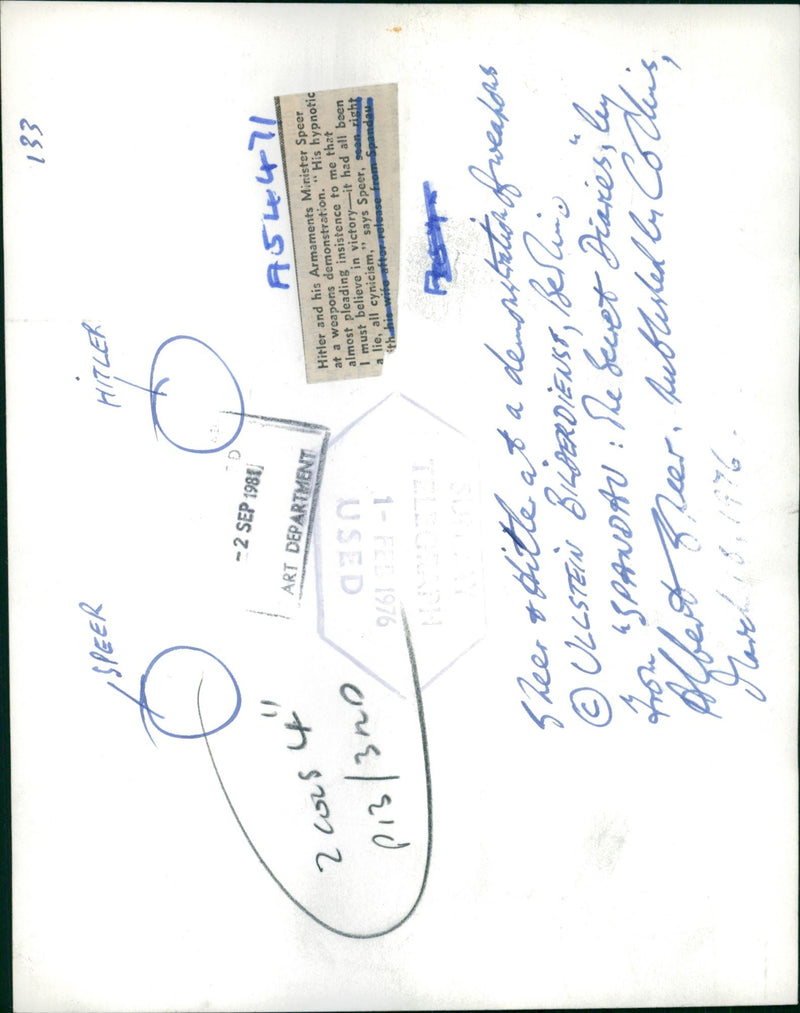 133
HITLER
SPEER
A54471
Hitler and his Armaments Minister Speer
at a weapons demonstration. "His hypnotic
almost pleading insistence to me that
I must believe in victory—it had all been
a lie, all cynicism," says Speer, seen right
with his wife after release from Spandau.
- 2 SEP 1981
ART DEPARTMENT
SUNDAY
TELEGRAPH
1 - FEB 1976
USED
2 cols 4"
p13/3RD
Speer & Hitler at a demonstration of weapons
© ULLSTEIN BILDERDIENST, Berlin
from "SPANDAU: The Secret Diaries," by
Albert Speer. Published by Collins,
March 8, 1976.